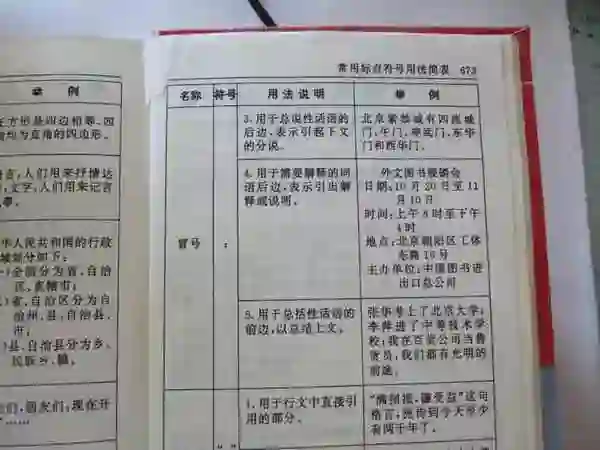 举 例
方形是四边相等、四
均为直角的四边形。
言,人们用来抒情达
文字,人们用来记言
事。
华人民共和国的行政
域划分如下:
一)全国分为省、自治
区、直辖市;
省、自治区分为自
治州、县、自治县、
市;
县、自治县分为乡、
民族乡、镇。
们,朋友们:现在开
……”
常用标点符号用法简表 673
名称 符号 用法说明 举 例
冒号 :
3.用于总说性话语的
后边,表示引起下文
的分说。
北京紫禁城有四座城
门:午门、神武门、东华
门和西华门。
4.用于需要解释的词
语后边,表示引出解
释或说明。
外文图书展销会
日期:10月20日至11
月10日
时间:上午8时至下午
4时
地点:北京朝阳区工体
东路16号
主办单位:中国图书进
出口总公司
5.用于总括性话语的
前边,以总结上文。
张华考上了北京大学;
李萍进了中等技术学
校;我在百货公司当售
货员:我们都有光明的
前途。
1.用于行文中直接引
用的部分。
“ ”
“满招损,谦受益”这句
格言,流传到今天至少
有两千年了。